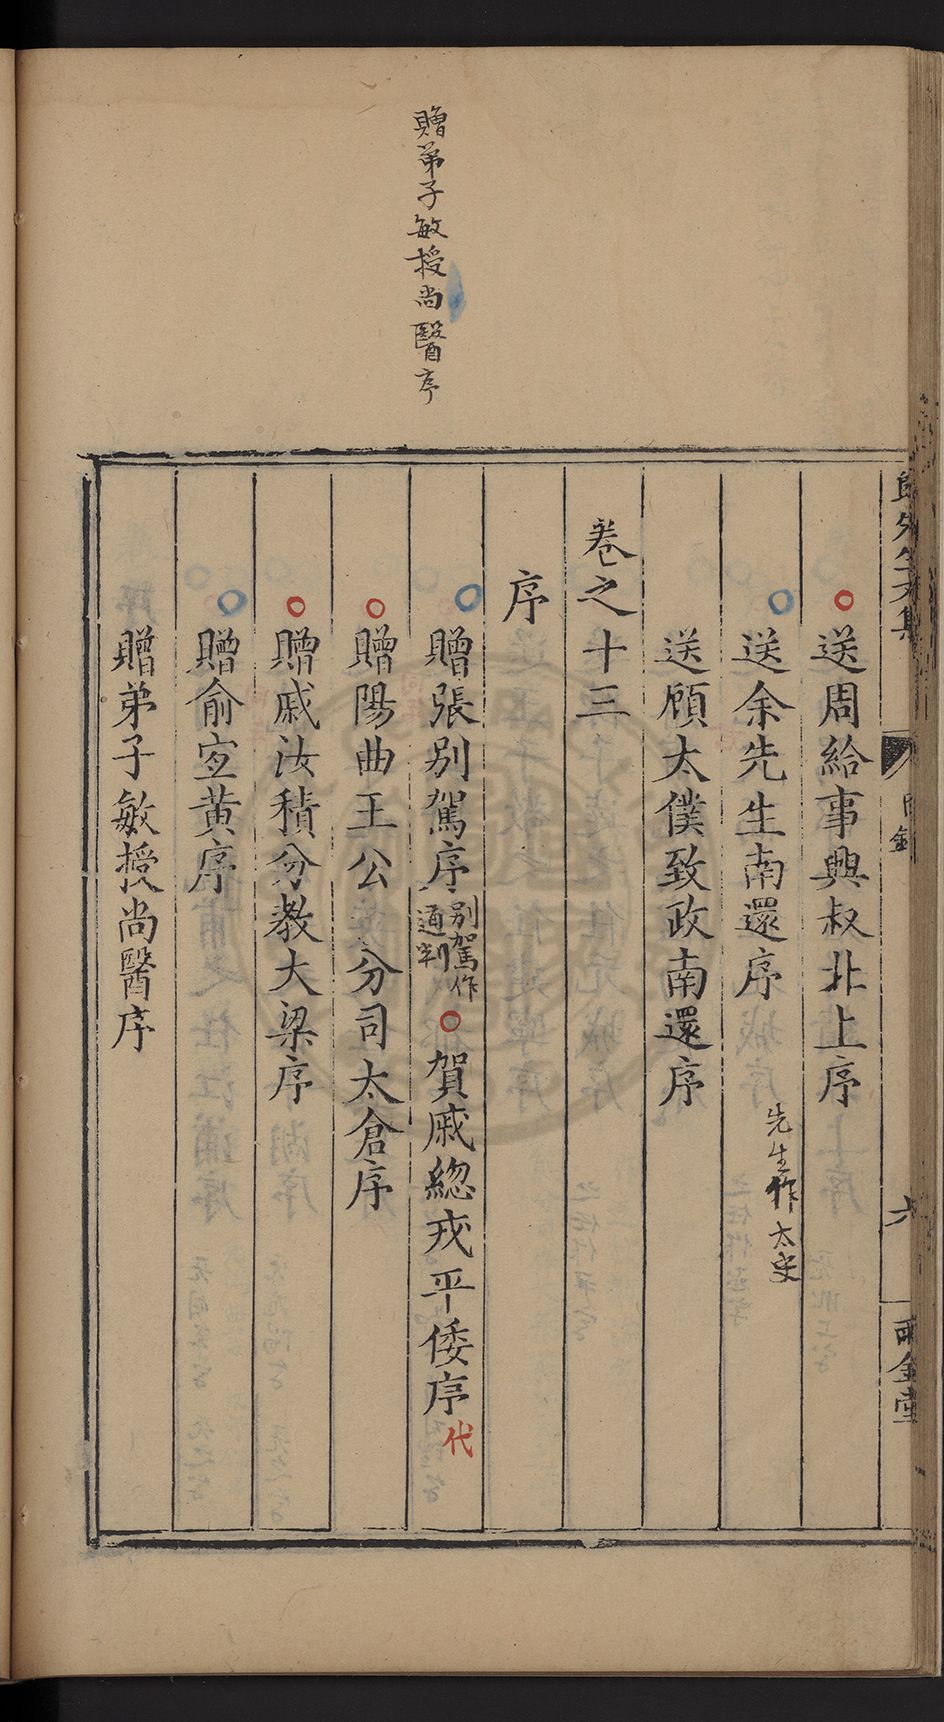 贈弟子敏授尚醫序
送周給事興叔北上序
送余先生南還序
先生作太史
送顧太僕致政南還序
卷之十三
序
贈張別駕序 別駕作通判 賀戚總戎平倭序 代
贈陽曲王公分司太倉序
贈戚汝積分教大梁序
贈俞宜黃序
贈弟子敏授尚醫序
目錄
六
兩金堂